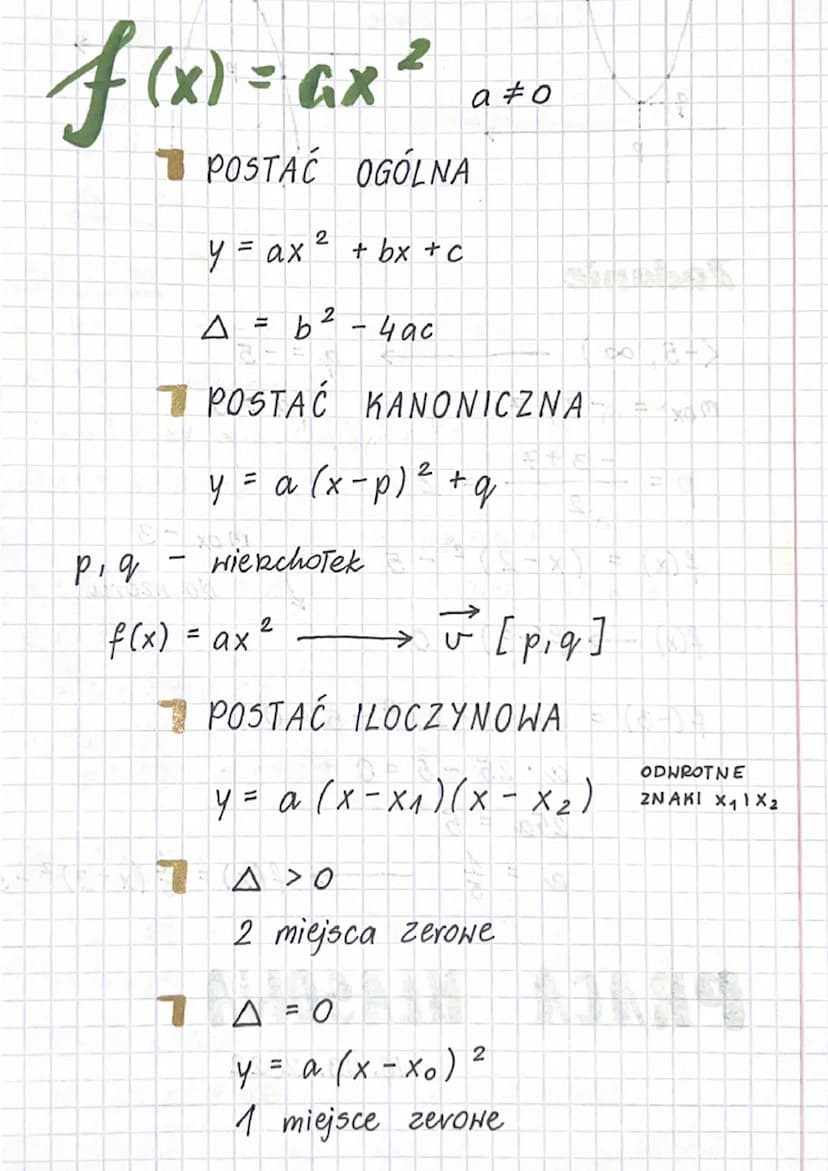 f(x) = ax² a ≠ 0
POSTAĆ OGÓLNA
y = ax² + bx + c
Δ = b² - 4ac
POSTAĆ KANONICZNA
y = a (x-p)² + q
p, q - wierzchołek
f(x) = ax² ⟶ v⃗ [p, q]
POSTAĆ ILOCZYNOWA
y = a (x-x₁)(x - x₂)
ODWROTNE
ZNAKI x₁ I x₂
Δ > 0
2 miejsca zerowe
Δ = 0
y = a (x-x₀)²
1 miejsce zerowe